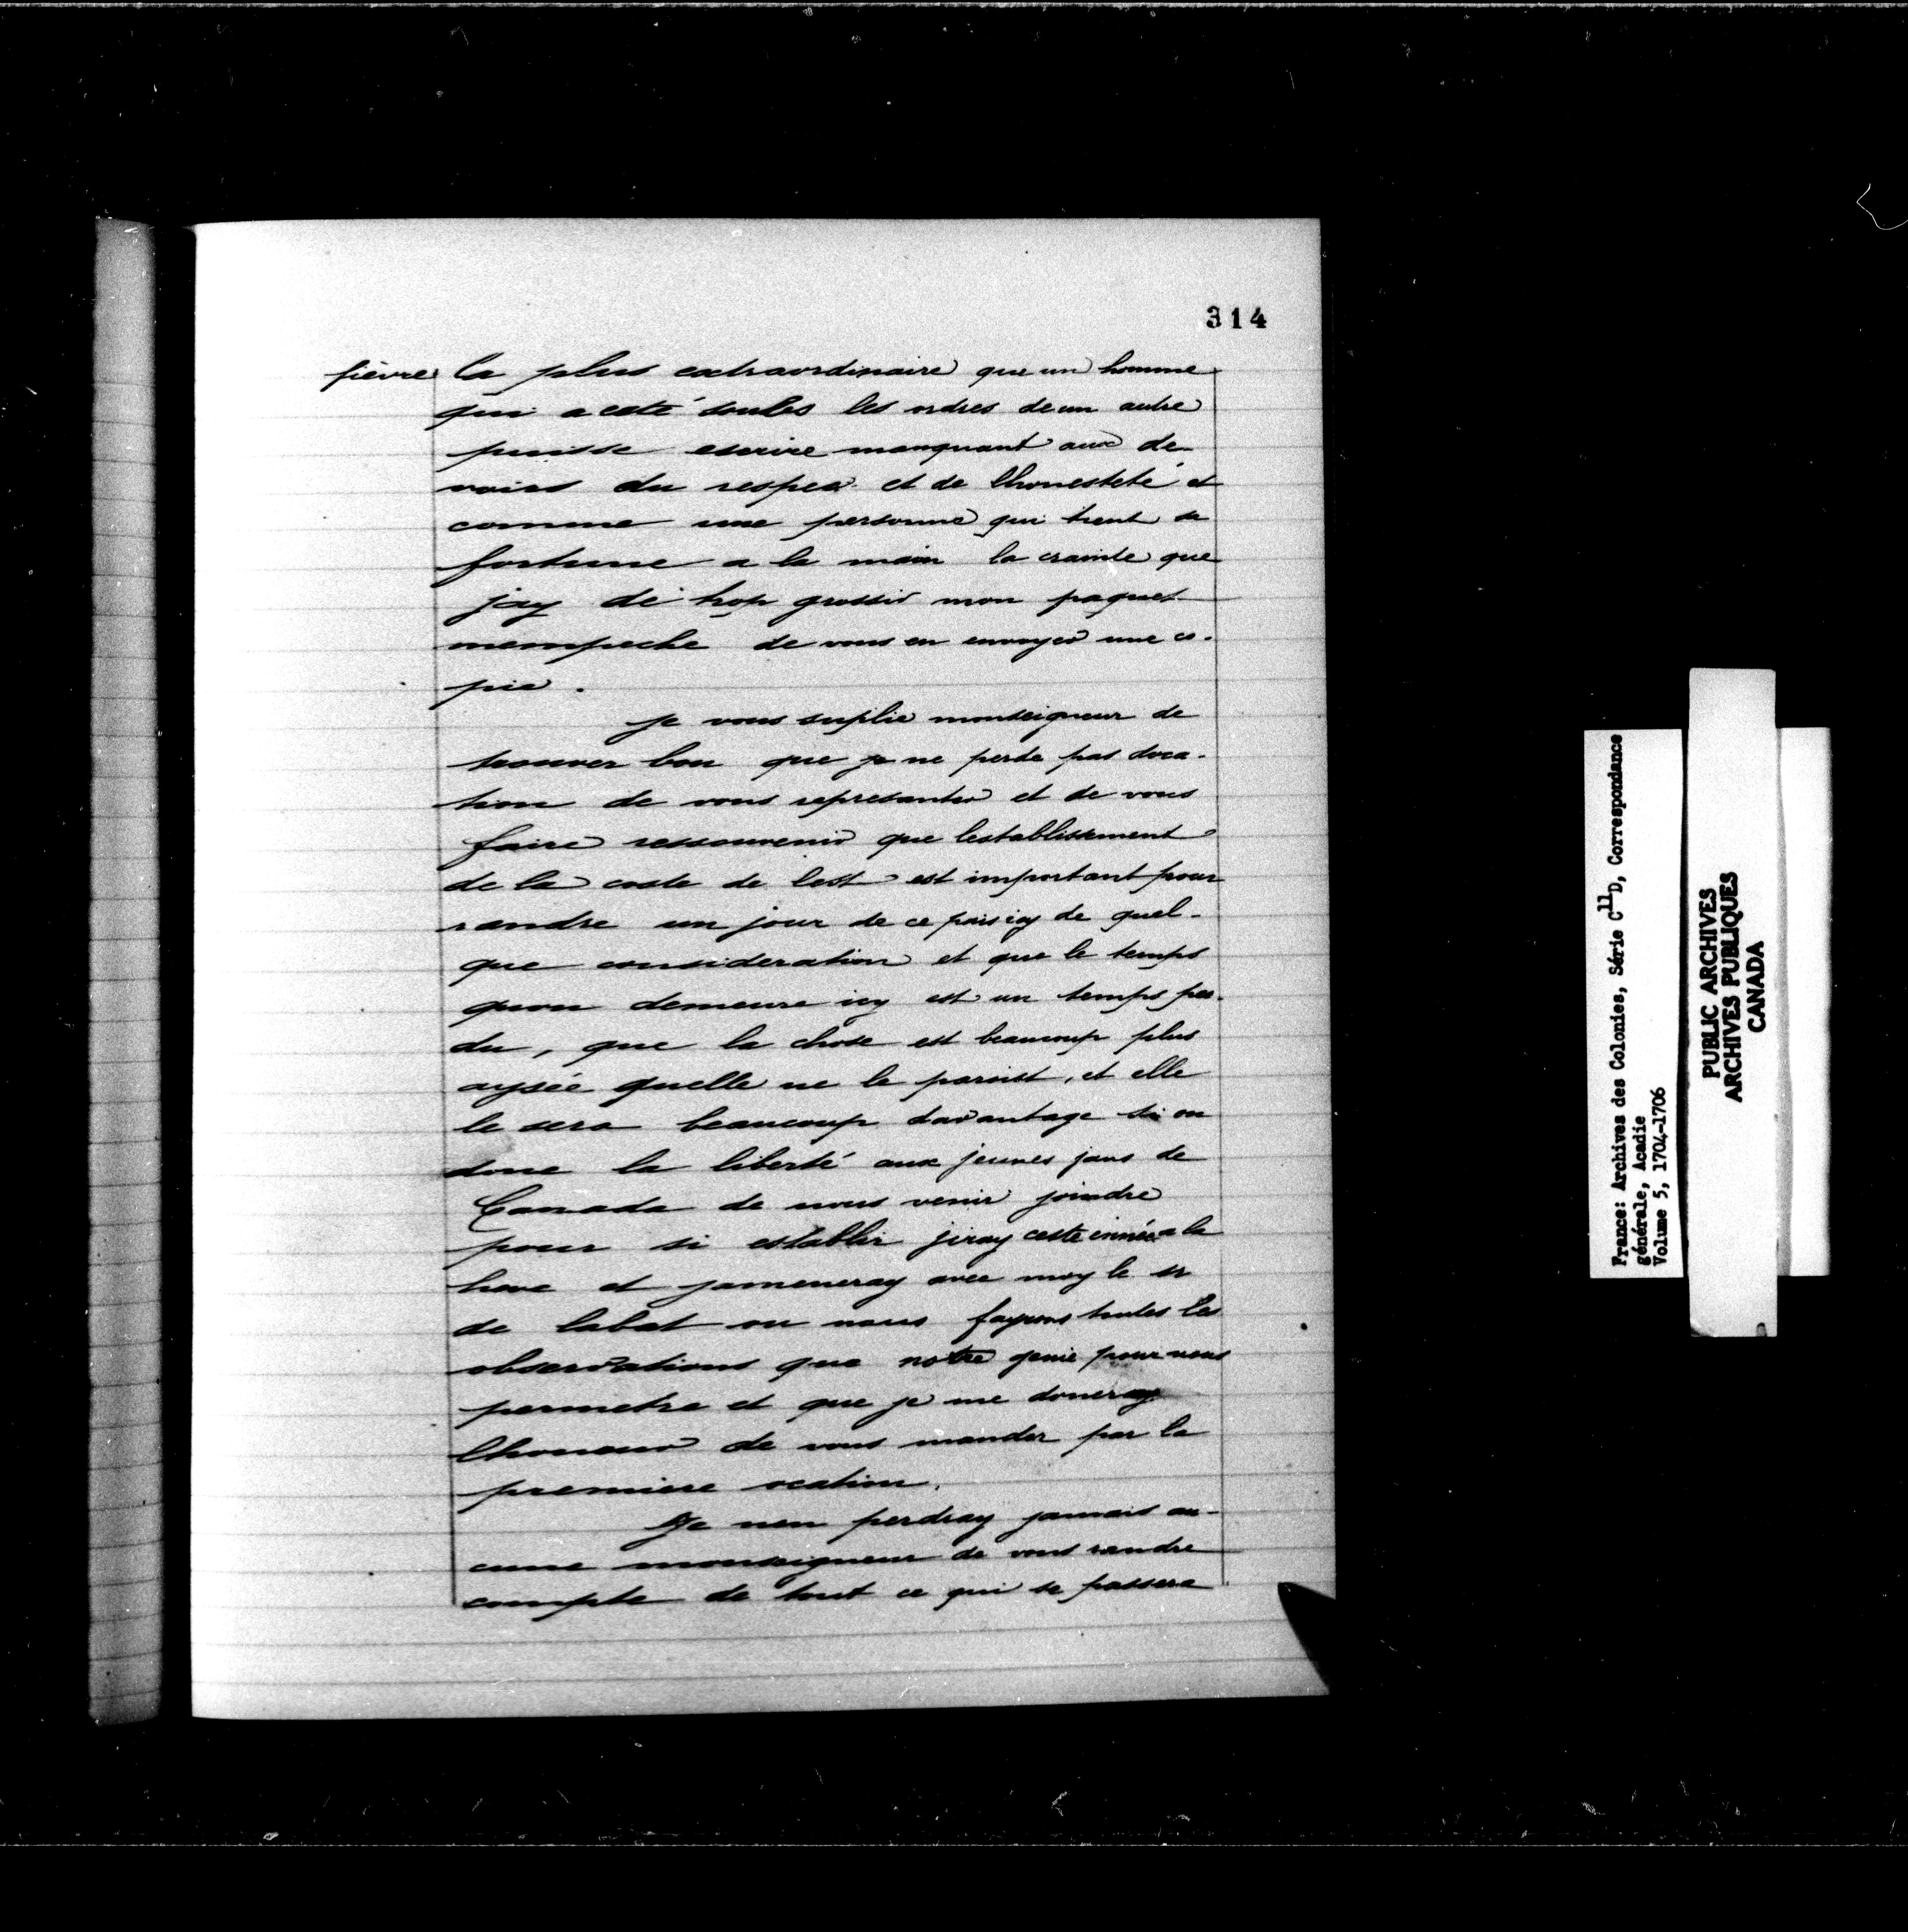 314
fièvre la plus extraordinaire que un homme
qui a esté soubs les ordres de un autre
puisse escrire manquant aux de
voirs du respec et de lhonesteté et
comme une personne qui tient sa
fortune a la main la crainte que
jay de trop grossir mon paquet
mempeche de vous en envoyer une co-
pie.
je vous suplie monseigneur de
trouver bon que je ne perde pas doca-
tion de vous represanter et de vous
faire ressouvenir que lestablissement
de la coste de lest est important pour
randre un jour de ce pais icy de quel-
que consideration et que le temps
quon demeure icy est un temps per-
du, que la chose est beaucoup plus
aysée quelle ne le paroist, et elle
le sera beaucoup davantage si on
done la liberté aux jeunes jans de
Canada de nous venir joindre
pour si establir jiray ceste année a la
heve et jameneray avec moy le sr
de labat ou nous fayrons toutes les
observations que notre genie pour nous
permetre et que je me doneray
lhonour de vous mander par la
premiere ocation.
Je nen perdray jamais au-
cune monseigneur de vous randre
compte de tout ce qui se passera
France: Archives des Colonies, Série C11D, Correspondance
générale, Acadie
Volume 5, 1704-1706
PUBLIC ARCHIVES
ARCHIVES PUBLIQUES
CANADA